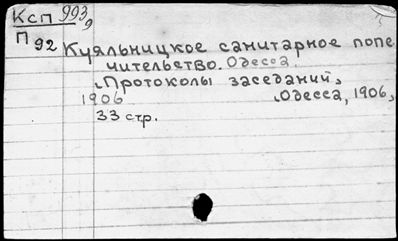 Ксп 993,
П 92
Куяльницкое санитарное попе
чительство. Одесса.
„Протоколы заседаний„
1906 „Одесса, 1906,
33 стр.